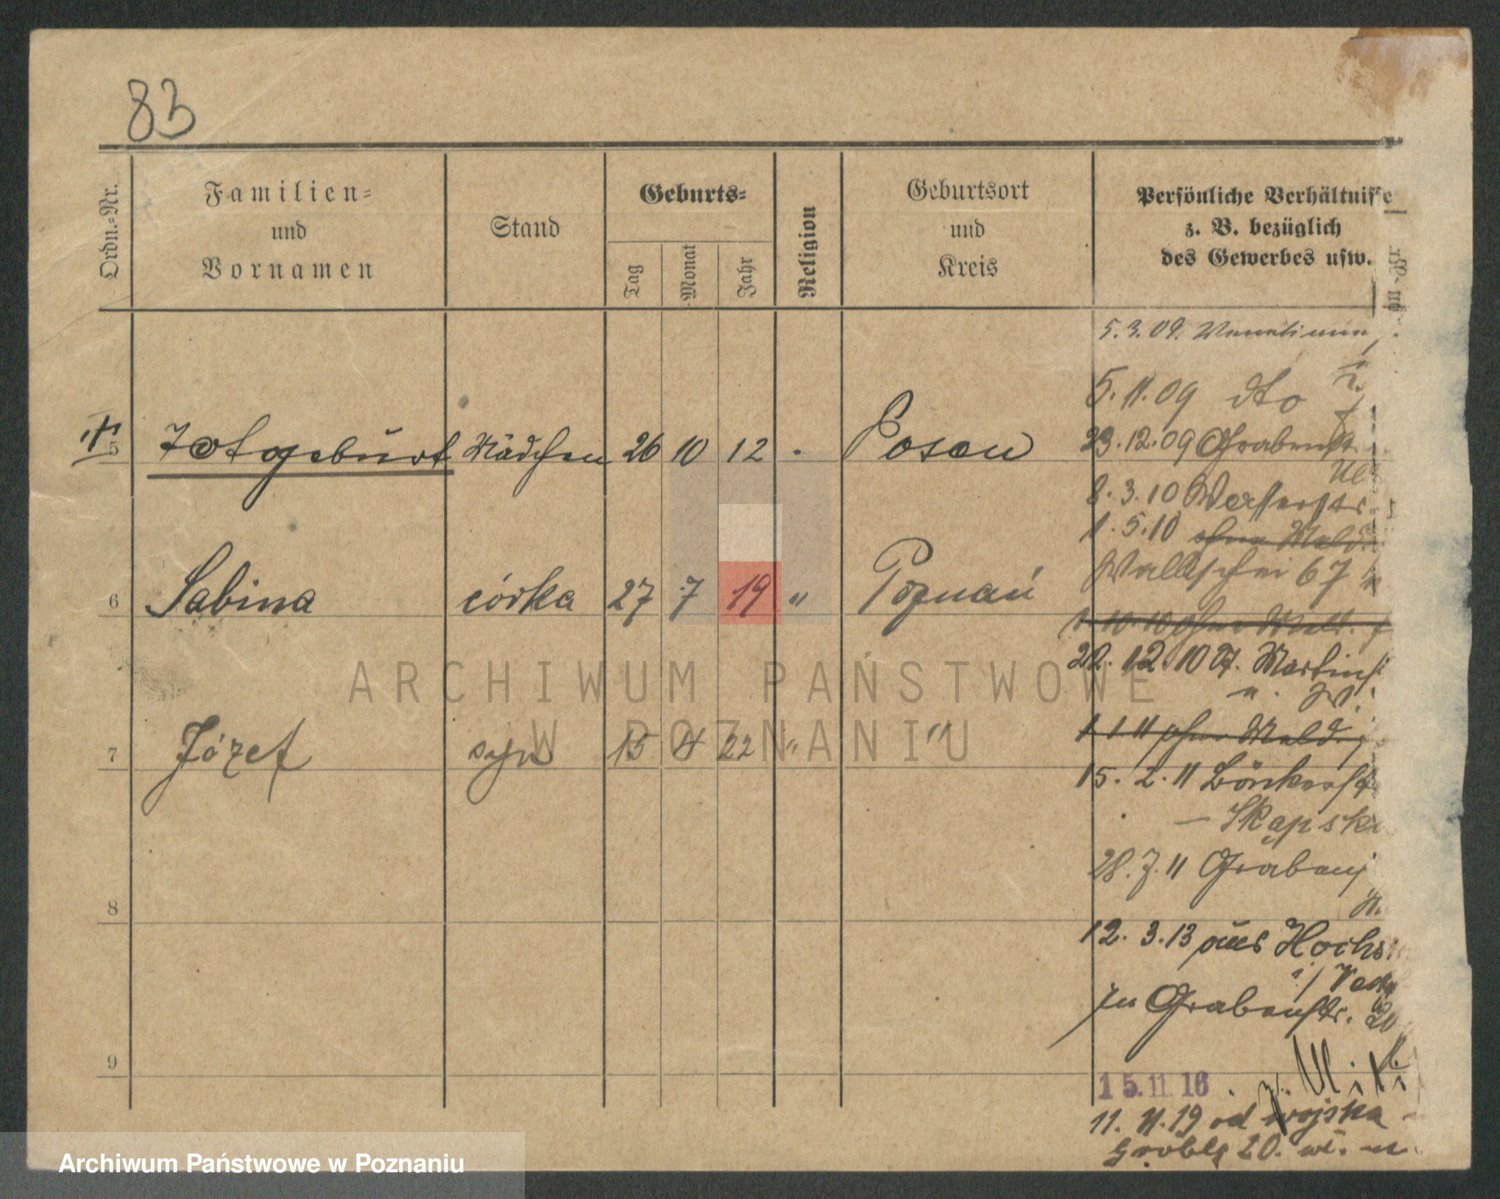 83
Ordn.-Nr.
Familien-
und
Vornamen
Stand
Geburts-
Tag
Monat
Jahr
Religion
Geburtsort
und
Kreis
Persönliche Verhältnisse
z. B. bezüglich
des Gewerbes usw.
5 Totgeburt Mädchen 26 10 12 Posen
6 Sabina córka 27 7 19 " Poznań
7 Józef syn 15 4 22 " "
8
9
5.3.09.
5.11.09 dto
23.12.09 Grabenstr.
8.3.10 Wasserstr.
1.5.10 ohne Meld.
Wallischei 67
1.10.10 ohne Meld.
22.12.10 St. Martinst
1 1 11 ohne Meldg
15.2.11 Bönkerst
28.7.11 Graben
12.3.13 aus Hochst
zu Grabenstr. 20
15.11.16
11.11.19 od wojska
Groblą 20.
ARCHIWUM PAŃSTWOWE
W POZNANIU
Archiwum Państwowe w Poznaniu